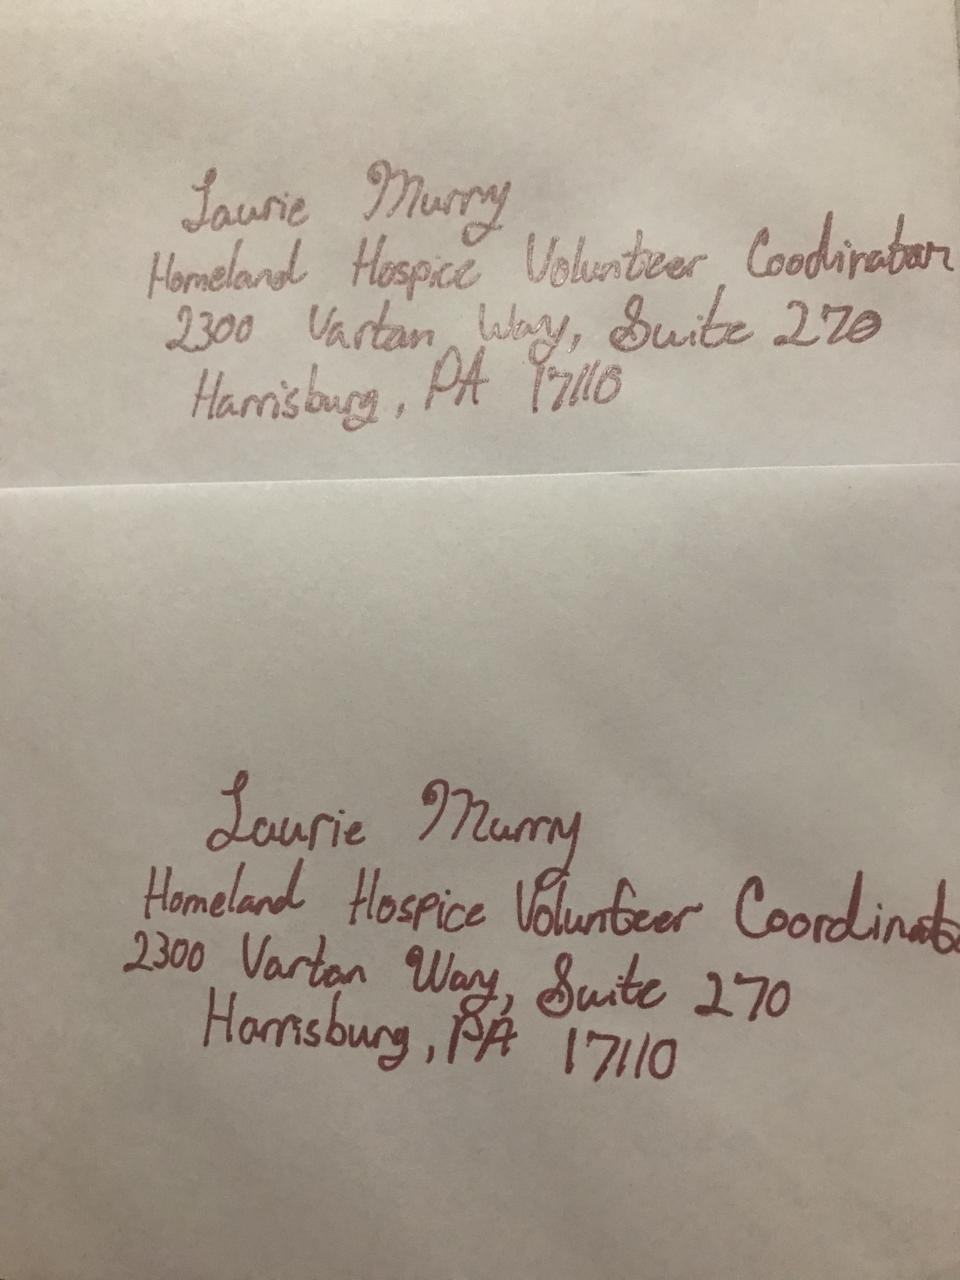 Laurie Murry
Homeland Hospice Volunteer Coodinator
2300 Vartan Way, Suite 270
Harrisburg, PA 17110
Laurie Murry
Homeland Hospice Volunteer Coordinato
2300 Vartan Way, Suite 270
Harrisburg, PA 17110